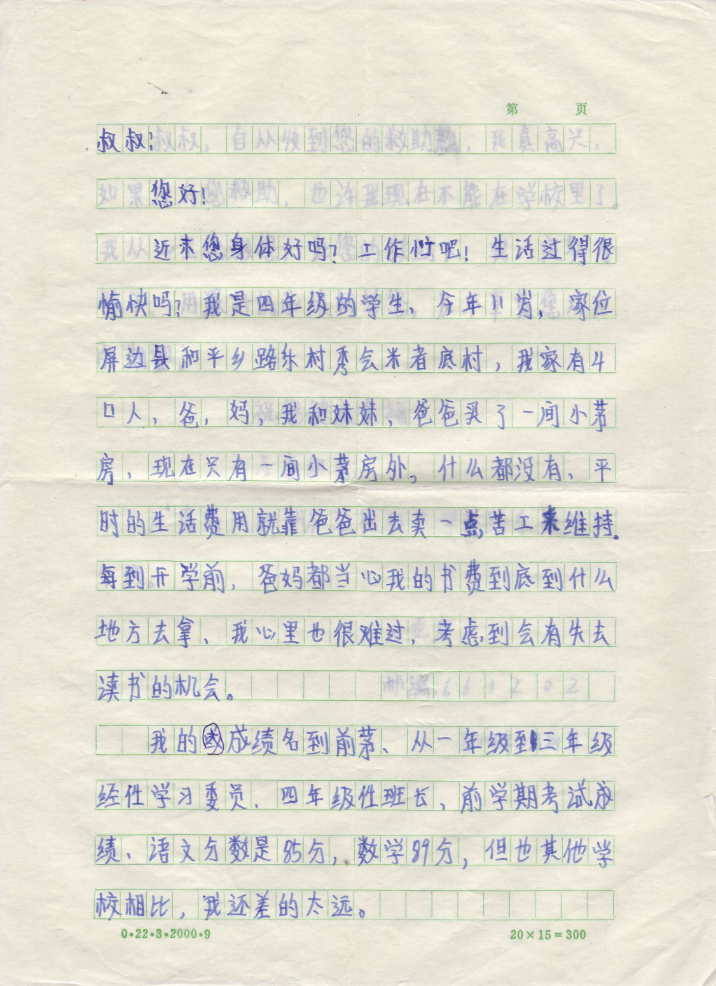 第 页
叔叔：
您好！
近来您身体好吗？工作忙吧！生活过得很
愉快吗？我是四年级的学生，今年11岁，家位
屏边县和平乡路乐村委会米者底村，我家有4
口人，爸，妈，我和妹妹，爸爸买了一间小茅
房、现在只有一间小茅房外。什么都没有、平
时的生活费用就靠爸爸出去卖一点苦工来维持。
每到开学前，爸妈都当心我的书费到底到什么
地方去拿、我心里也很难过，考虑到会有失去
读书的机会。
我的成绩名到前茅、从一年级到三年级
经任学习委员．四年级任班长、前学期考试成
绩、语文分数是85分，数学89分，但也其他学
校相比，我还差的太远。
0·22·3·2000·9 20×15=300